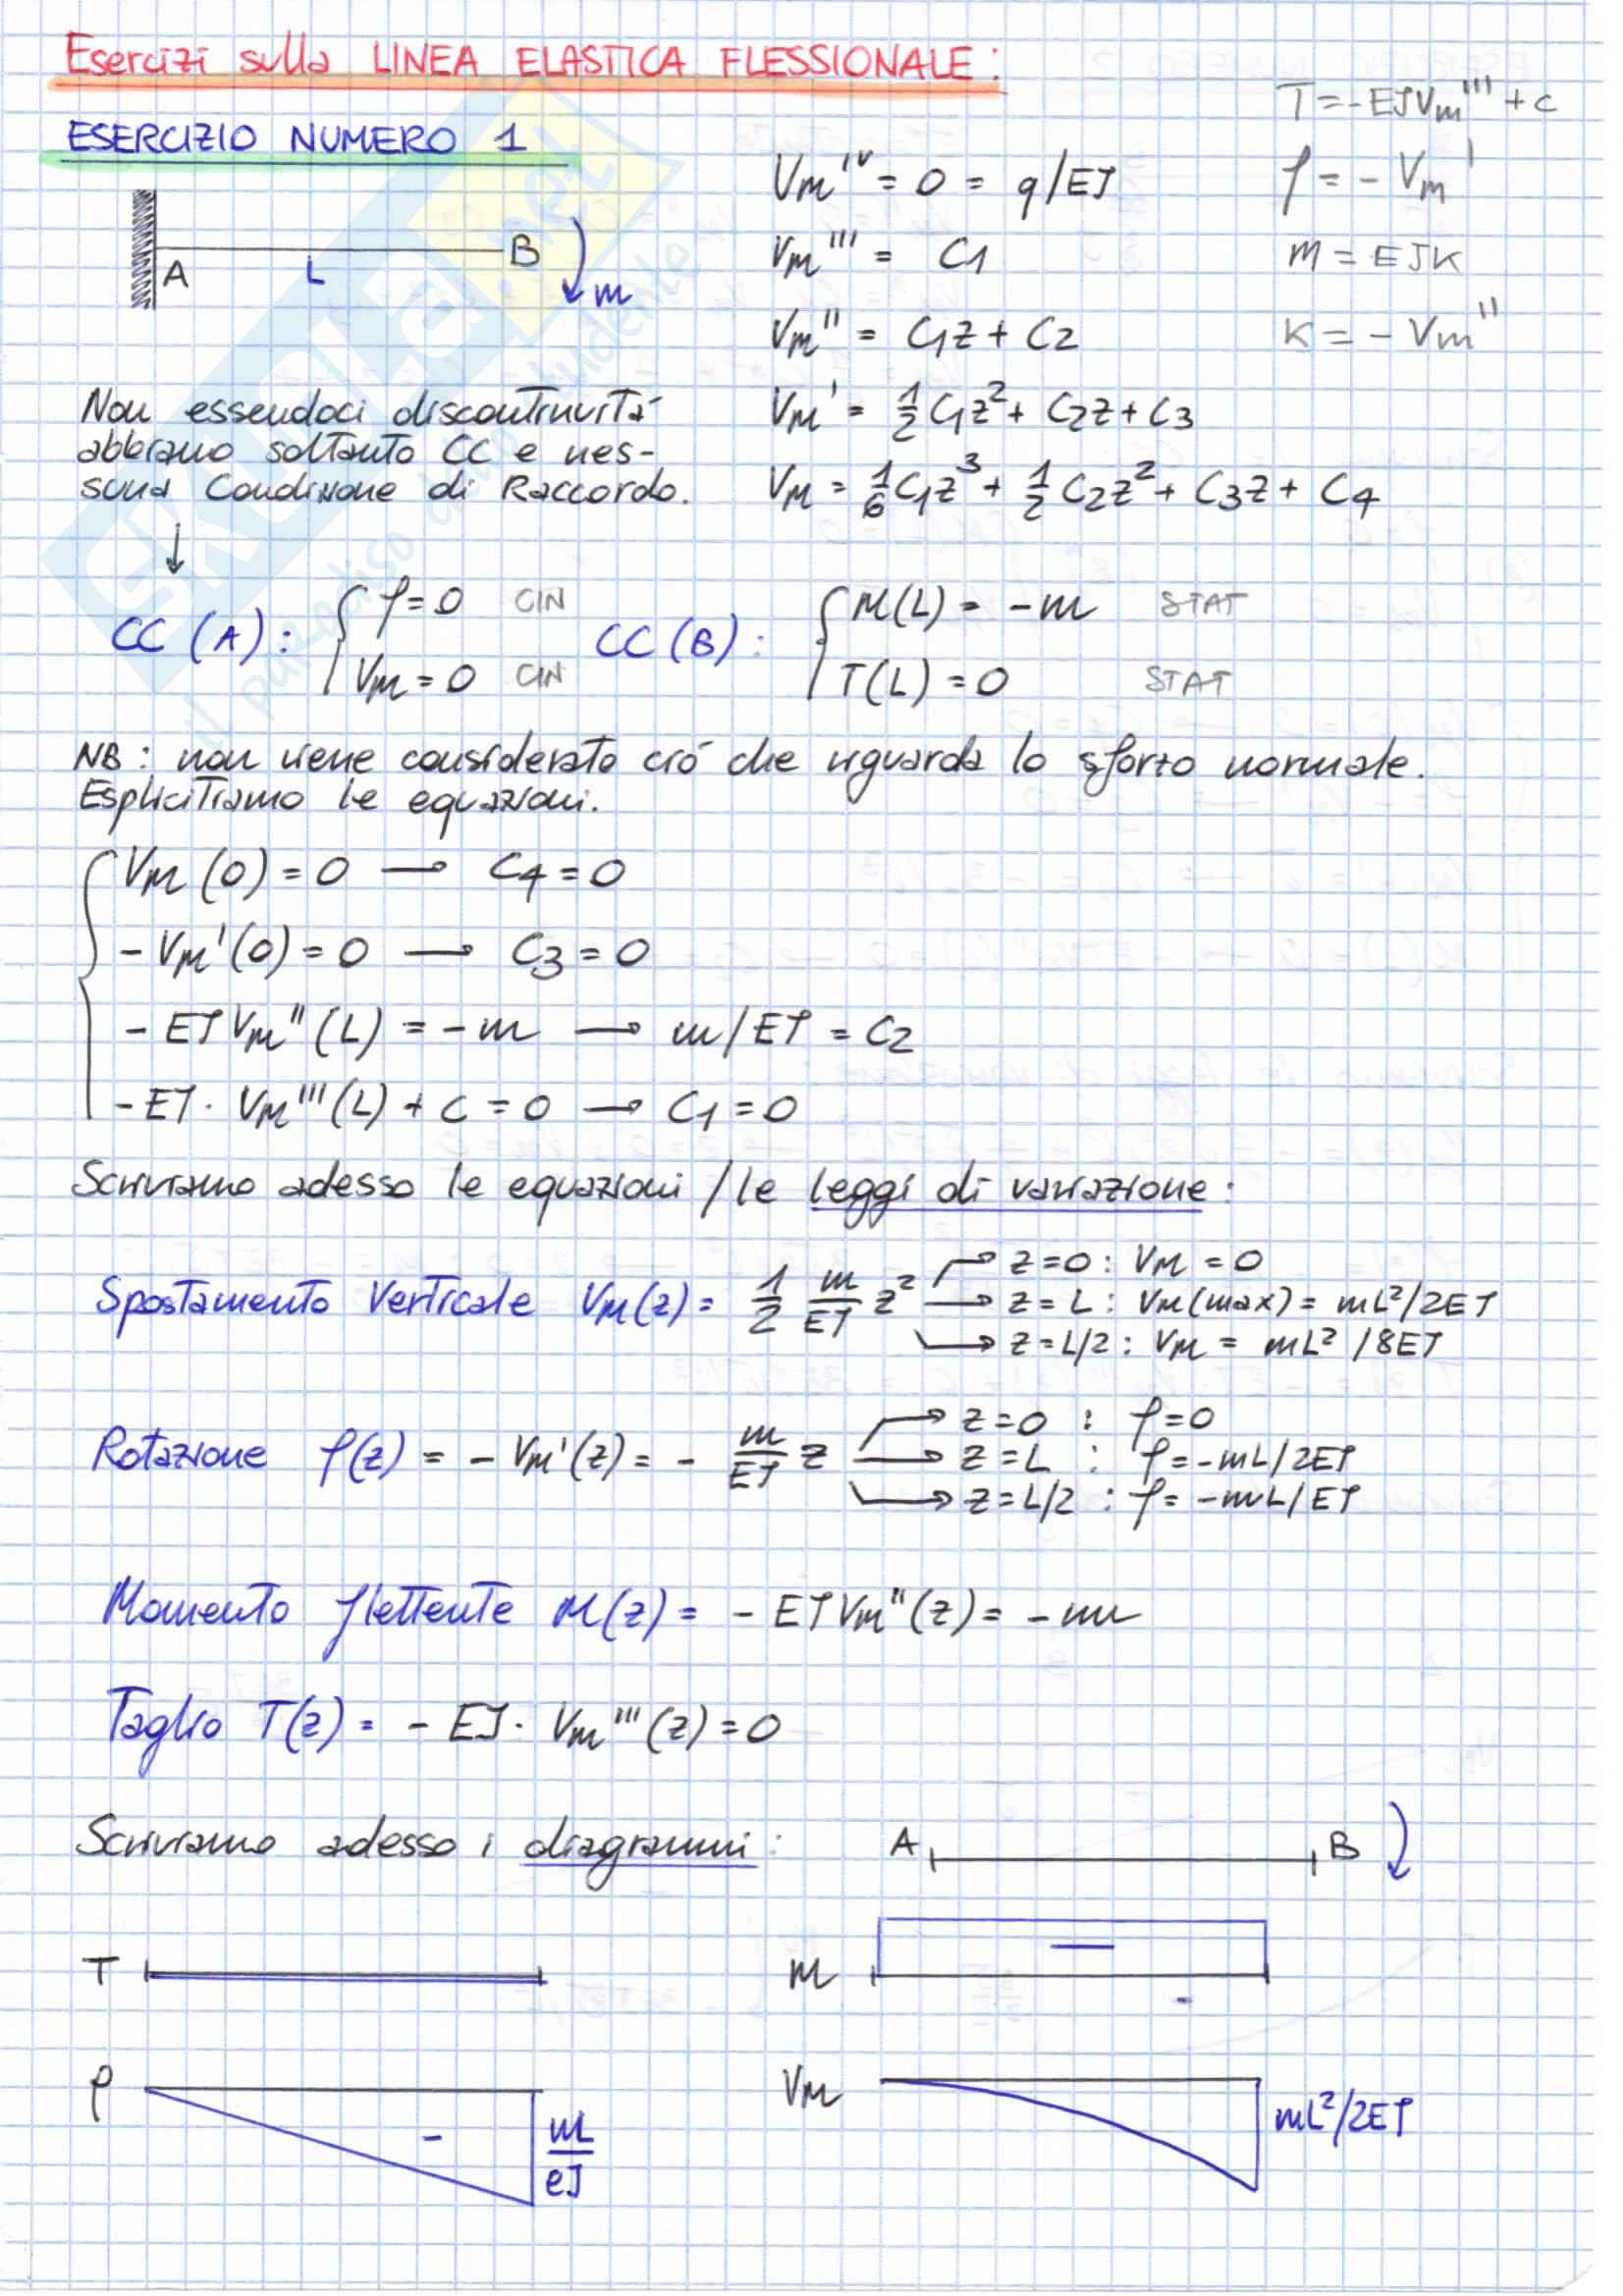 Esercizi sulla LINEA ELASTICA FLESSIONALE:
ESERCIZIO NUMERO 1
T=-EJVm'''+c
φ=-Vm'
m=EJK
K=-Vm''
Vm'ᵛ=0=q/EJ
Vm'''=C1
Vm''=C1z+C2
Vm'=½C1z²+C2z+C3
Vm=1/6C1z³+½C2z²+C3z+C4
A
L
B
m
Non essendoci discontinuità
abbiamo soltanto CC e nes-
suna Condizione di Raccordo.
↓
CC(A): φ=0 CIN
Vm=0 CIN
CC(B): M(L)=-m STAT
T(L)=0 STAT
NB: non viene considerato ciò che riguarda lo sforzo normale.
Esplicitiamo le equazioni.
Vm(0)=0 → C4=0
-Vm'(0)=0 → C3=0
-EJVm''(L)=-m → m/EJ=C2
-EJ·Vm'''(L)+c=0 → C1=0
Scriviamo adesso le equazioni/le leggi di variazione:
Spostamento Verticale Vm(z)=1/2 m/EJ z²
→ z=0: Vm=0
→ z=L: Vm(max)=mL²/2EJ
→ z=L/2: Vm=mL²/8EJ
Rotazione φ(z)=-Vm'(z)=-m/EJ z
→ z=0: φ=0
→ z=L: φ=-mL/2EJ
→ z=L/2: φ=-mL/EJ
Momento flettente M(z)=-EJVm''(z)=-m
Taglio T(z)=-EJ·Vm'''(z)=0
Scriviamo adesso i diagrammi:
A B
T
M -
φ - mL/eJ
Vm mL²/2EJ
skuola.net
il paradiso dello studente